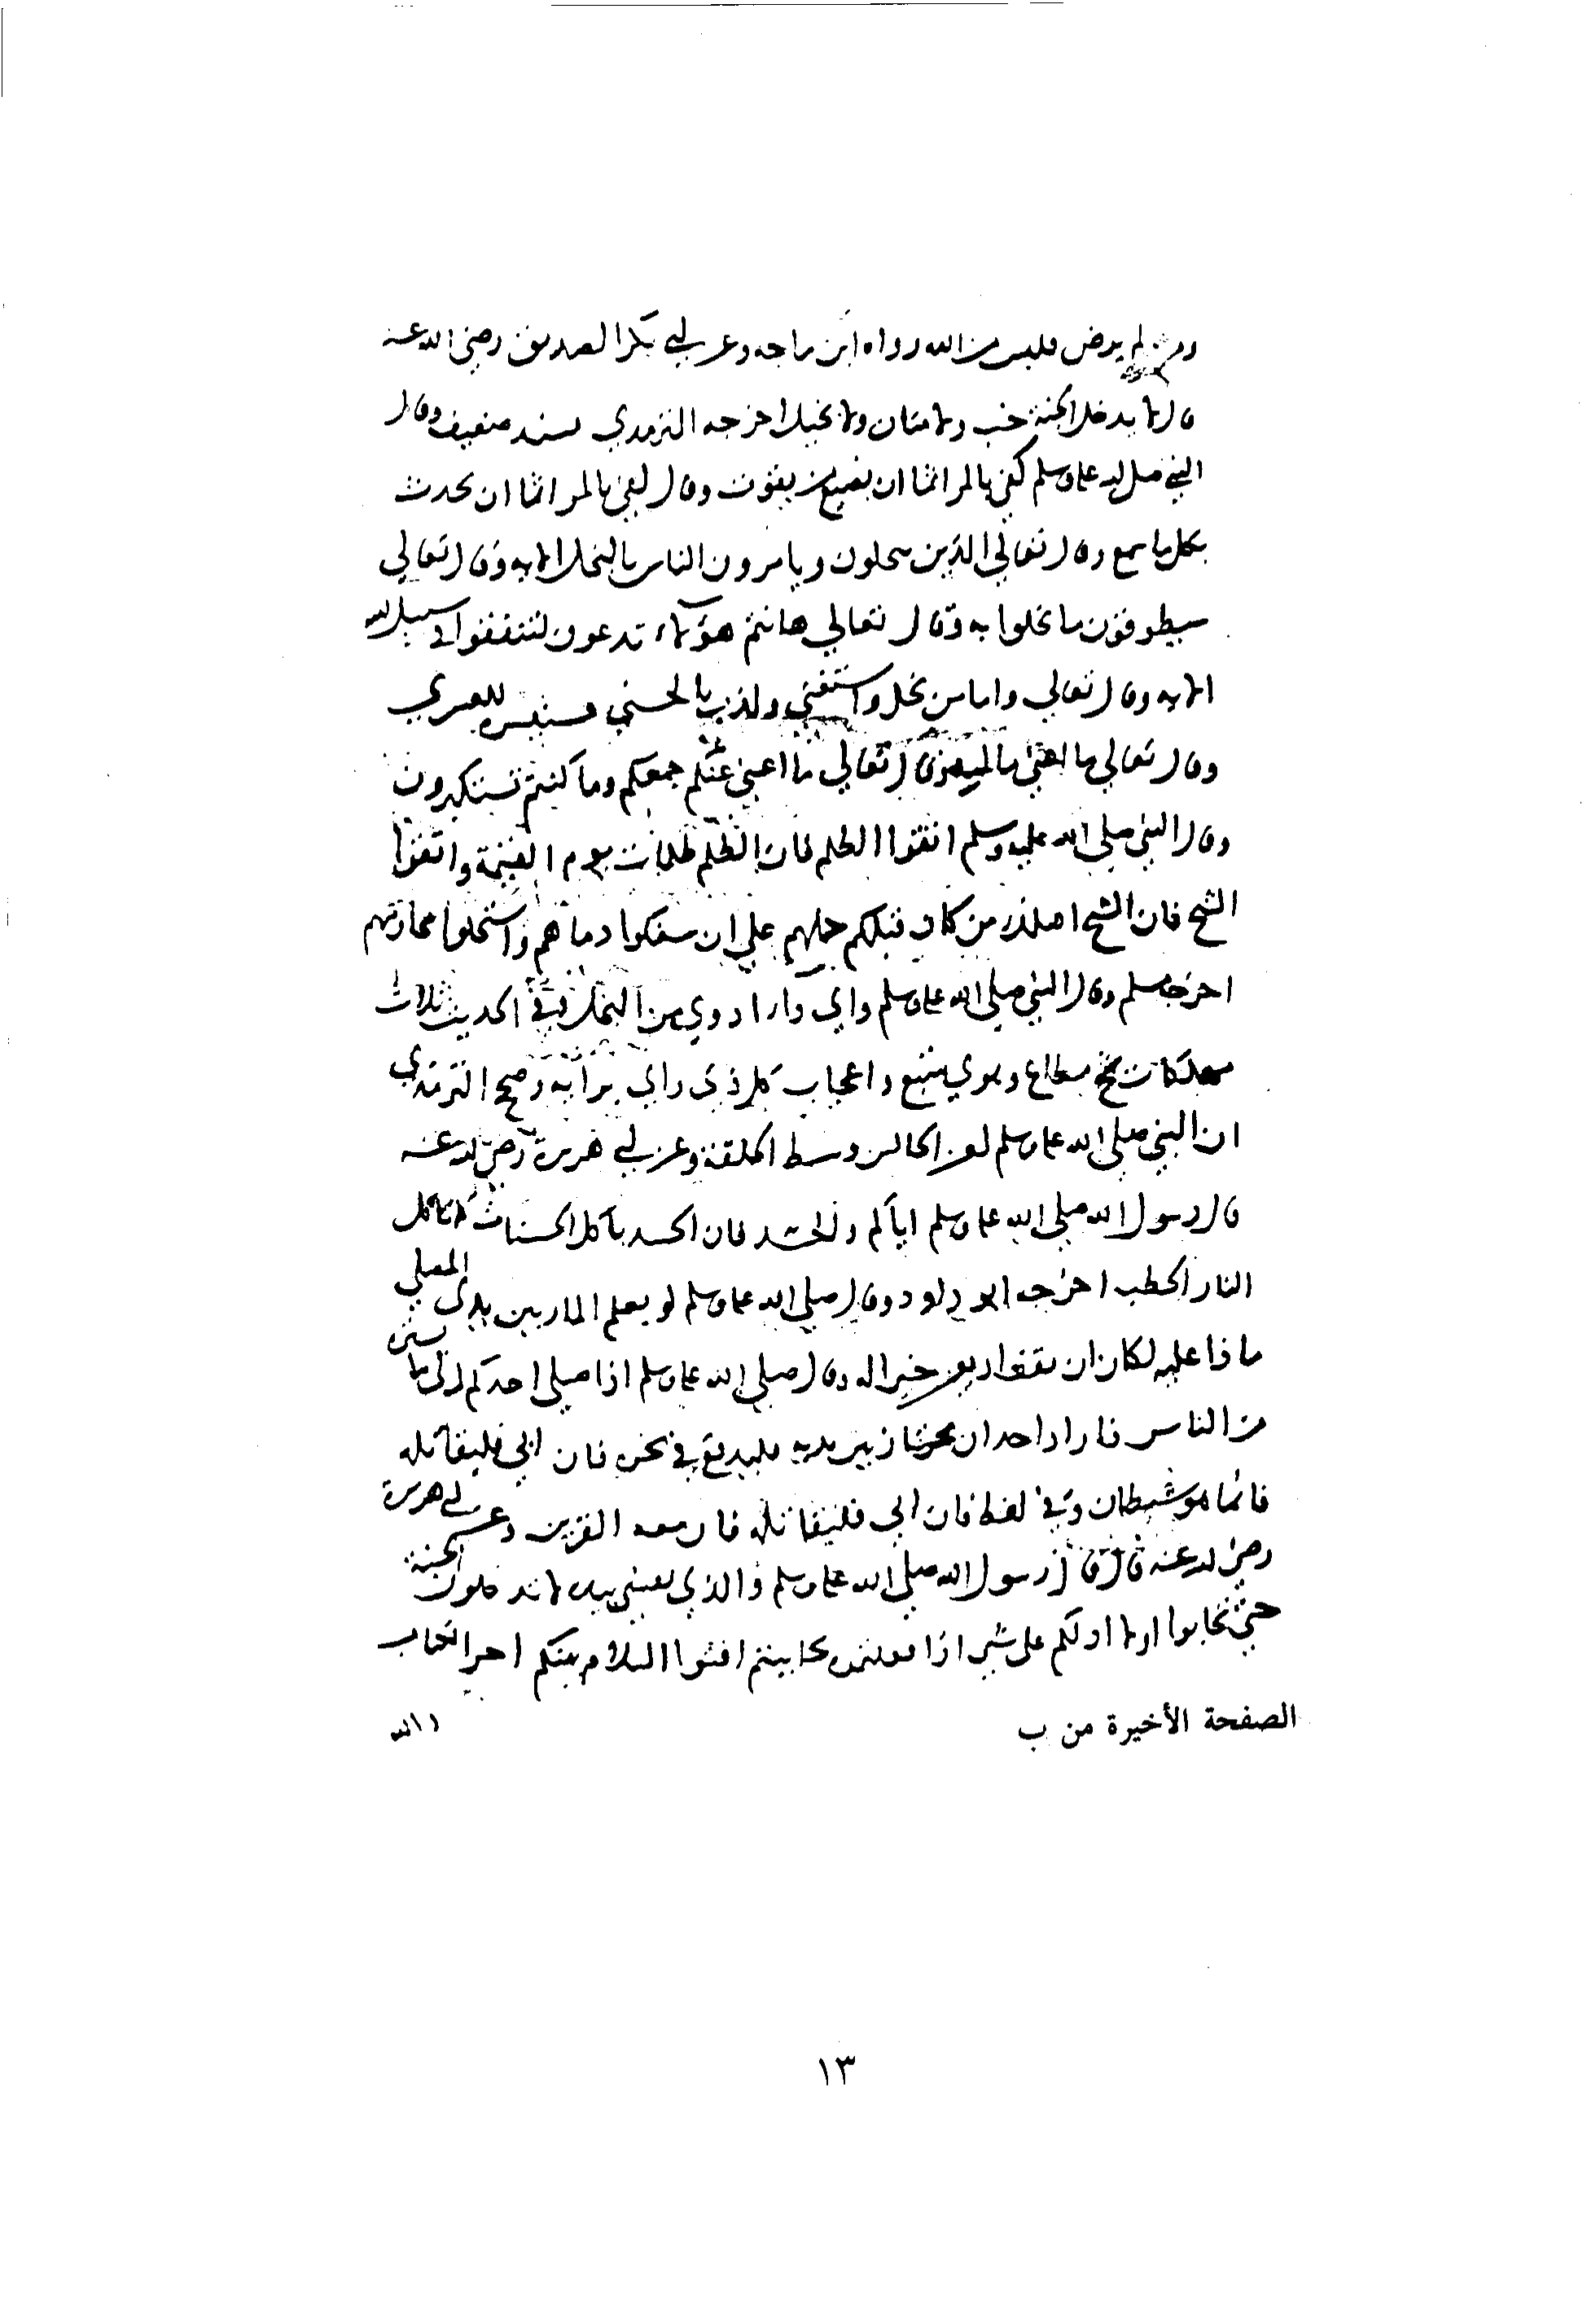 ومن لم يرض فليس من الله رواه ابن ماجه وعن ابي بكر الصديق رضي الله عنه
قال لا يدخل الجنة خب ولا منان ولا بخيل اخرجه الترمذي بسند ضعيف وقال
النبي صلى الله عليه وسلم كفى بالمرء اثما ان يضيع من يقوت وقال كفى بالمرء اثما ان يحدث
بكل ما سمع وقال تعالى الذين يبخلون ويامرون الناس بالبخل الايه وقال تعالي
سيطوقون ما بخلوا به وقال تعالي هانتم هؤلاء تدعون لتنفقوا في سبيل الله
الايه وقال تعالي واما من بخل واستغني وكذب بالحسني فسنيسره للعسري
وقال تعالي ما اغني عني ماليه وقال تعالي ما اغني عنكم جمعكم وما كنتم تستكبرون
وقال النبي صلي الله عليه وسلم اتقوا الظلم فان الظلم ظلمات يوم القيمة واتقوا
الشح فان الشح اهلك من كان قبلكم حملهم علي ان سفكوا دماهم واستحلوا محارمهم
اخرجه مسلم وقال النبي صلي الله عليه وسلم واي داء ادوي من البخل وفي الحديث ثلاث
مهلكات شح مطاع وهوي متبع واعجاب كل ذي راي برايه وصح الترمذي
ان النبي صلي الله عليه وسلم لعن الجالس وسط الحلقة وعن ابي هريرة رضي الله عنه
قال رسول الله صلي الله عليه وسلم اياكم والحسد فان الحسد ياكل الحسنات كما تاكل
النار الحطب اخرجه ابو داود وقال صلي الله عليه وسلم لو يعلم المار بين يدي المصلي
ماذا عليه لكان ان يقف اربعين خير اله وقال صلي الله عليه وسلم اذا صلي احدكم الى ما يستره
من الناس فاراد احد ان يجتاز بين يديه فليدفع في نحره فان ابي فليقاتله
فانما هو شيطان وفي لفظ فان ابي فليقاتله فان معه القرين وعن ابي هريرة
رضي الله عنه قال قال رسول الله صلي الله عليه وسلم والذي نفسي بيده لا تدخلون الجنة
حتي تحابوا اولا ادلكم على شي اذا فعلتموه تحاببتم افشوا السلام بينكم اخر الكتاب
الصفحة الأخيرة من ب
١٣